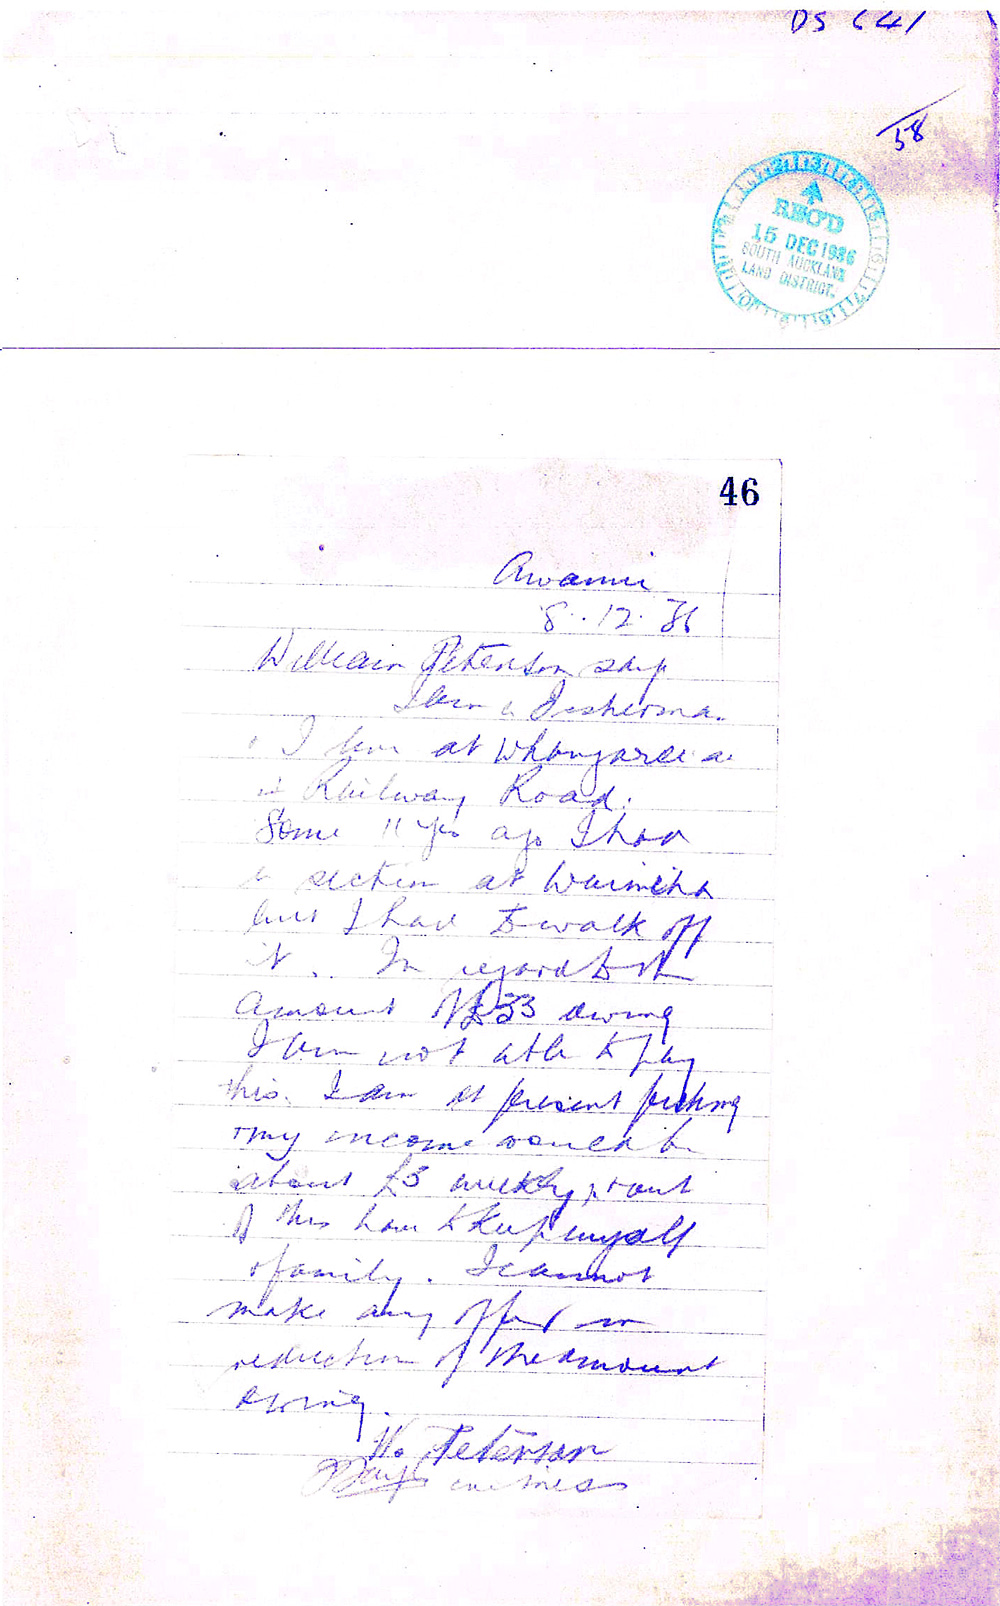 58
RECD
15 DEC 1936
SOUTH AUCKLAND
LAND DISTRICT.
46
8.12.36
William Peterson
I am a Fisherma.
I live at Whangarei
in Railway Road.
Some 11 yrs ago I had
a section at Waimiha
but I had to walk off
it. In regard to the
amount of £33 owing
I am not able to pay
this. I am at present fishing
my income would be
about £3 weekly, & out
of this have to keep myself
& family. I cannot
make any offer in
reduction of the amount
owing.
W. Peterson
witness